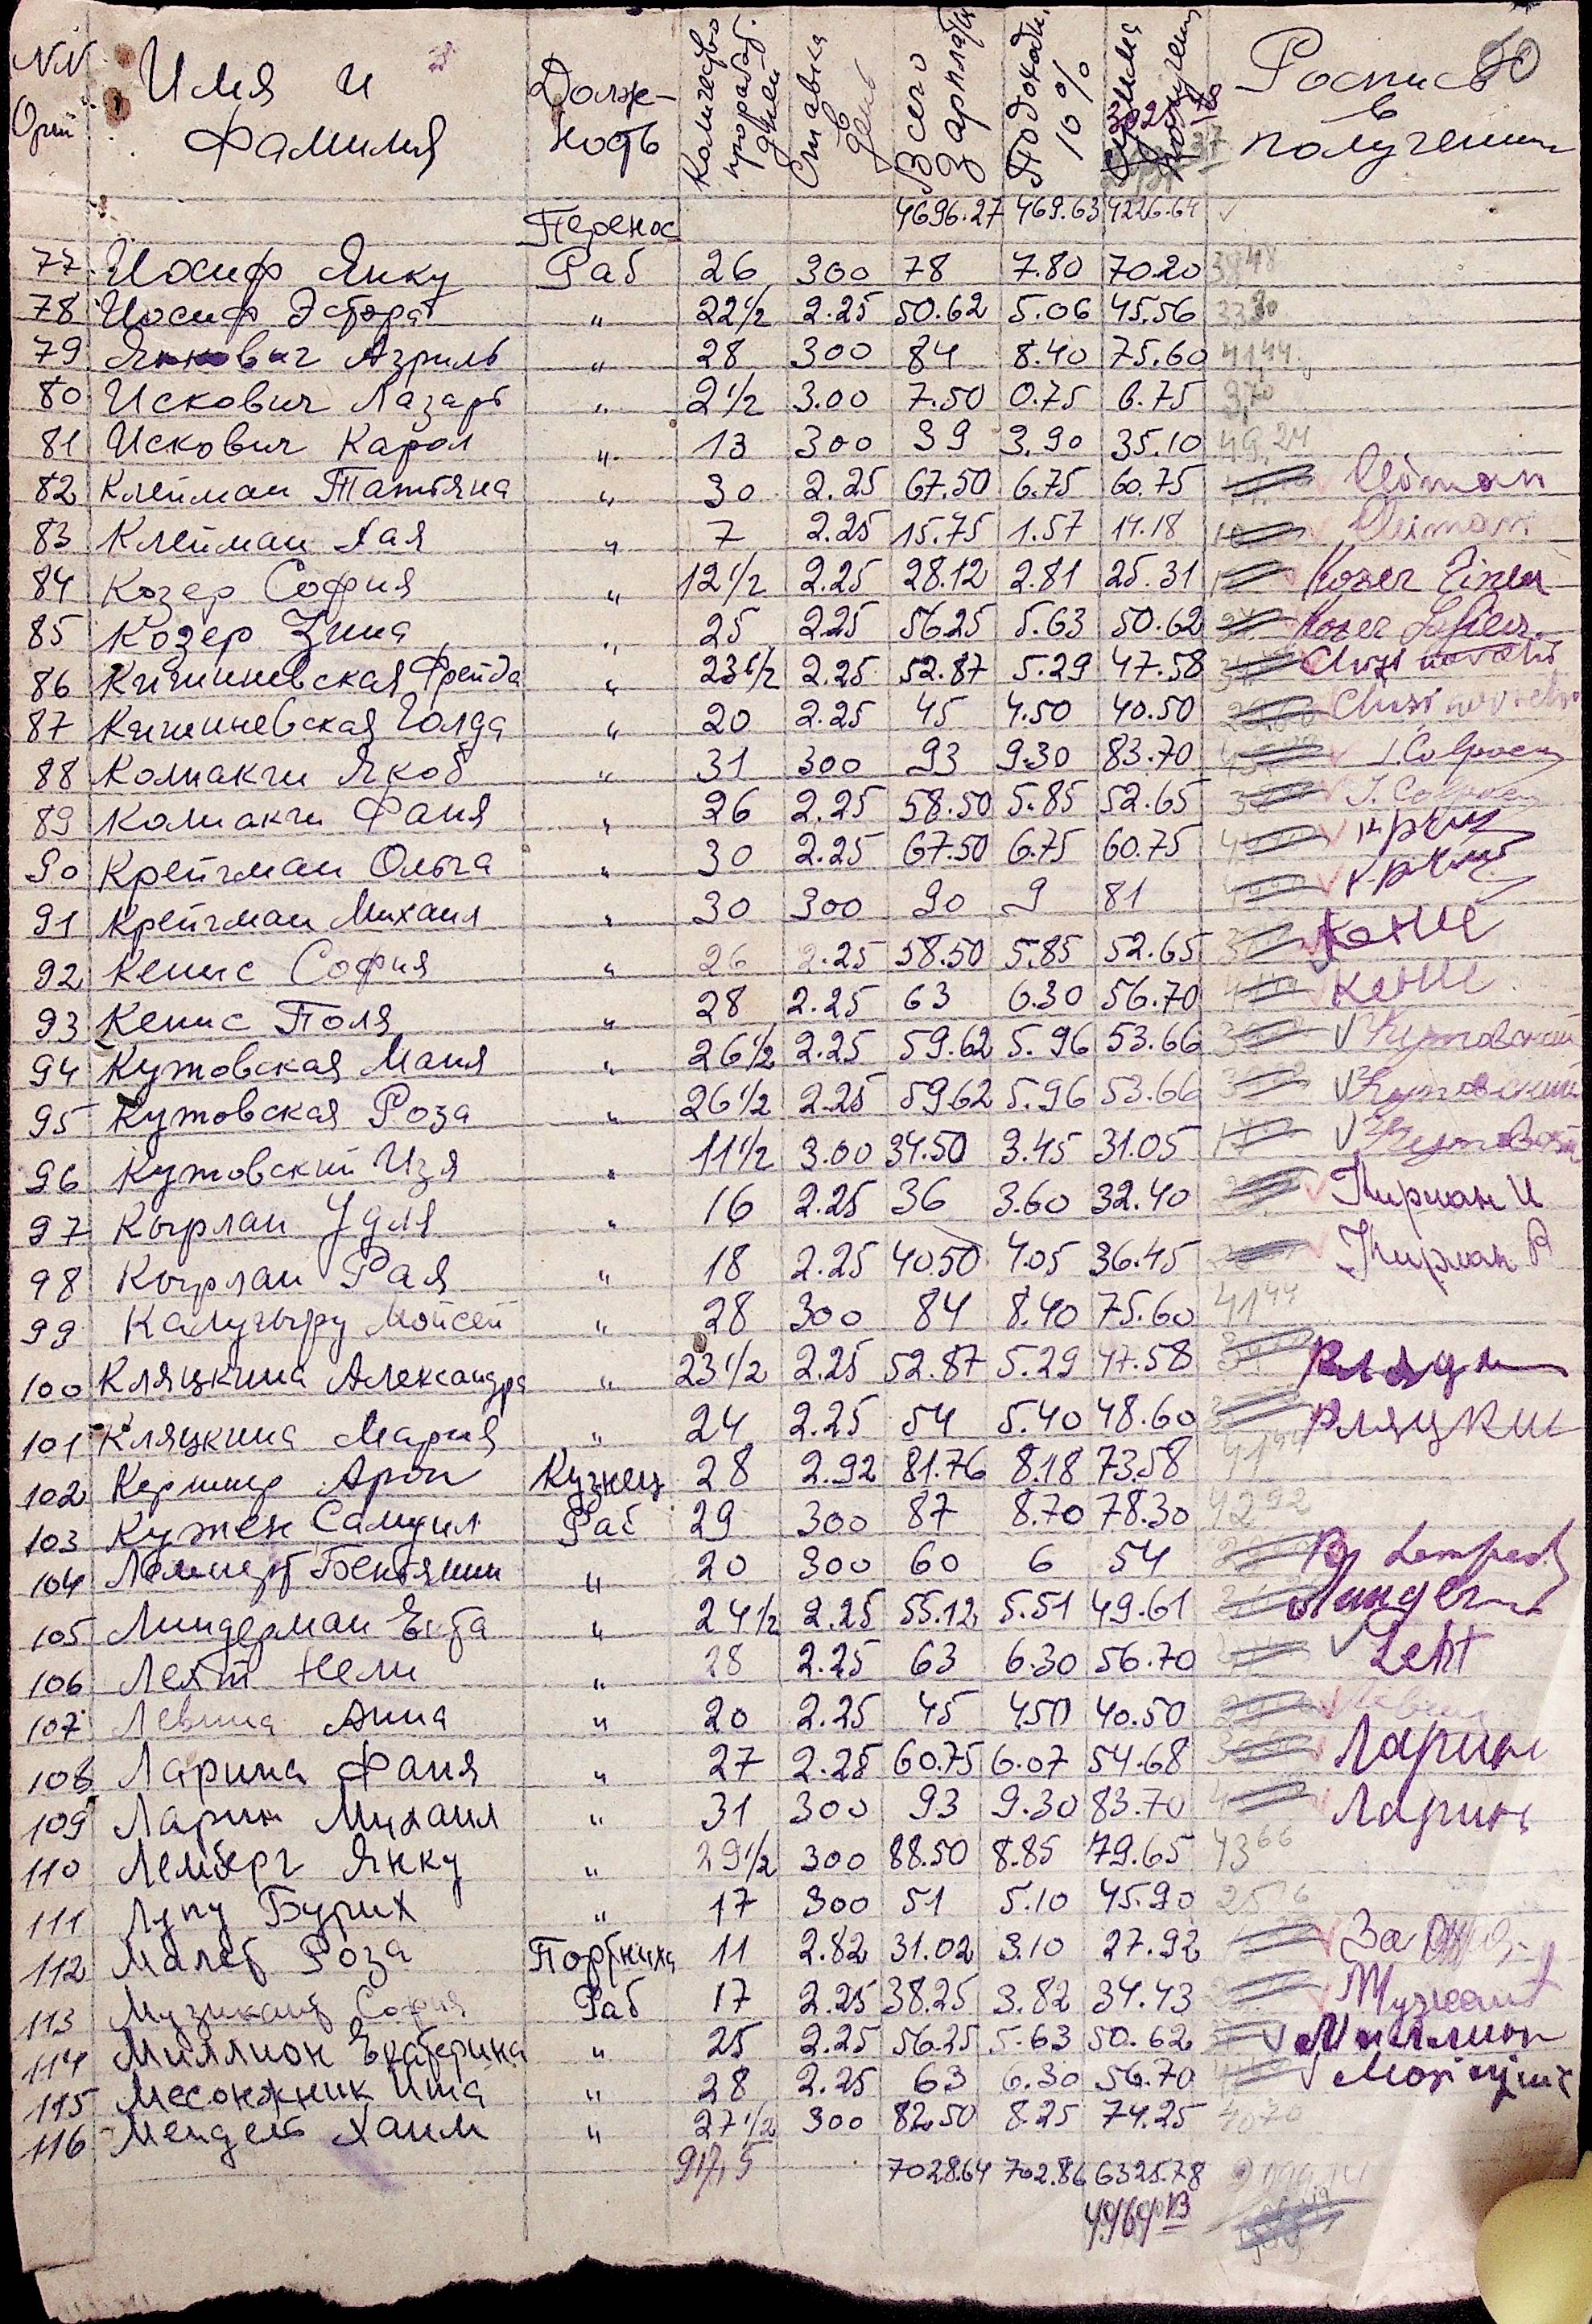 NN Орд. Имя и фамилия Должность Количество проработ. дней Ставка в день Всего зарплаты Подоходн. 10% Роспись в получении 50
Перенос 4696.27 469.63 4226.64
77 Иосиф Янку Раб 26 300 78 7.80 70.20
78 Иосиф Эстера " 22½ 2.25 50.62 5.06 45.56
79 Янкович Азриль " 28 300 84 8.40 75.60 41,44
80 Искович Лазарь " 2½ 3.00 7.50 0.75 6.75 3,70
81 Искович Карол " 13 300 39 3.90 35.10 49,24
82 Клейман Татьяна " 30 2.25 67.50 6.75 60.75
83 Клейман Хая " 7 2.25 15.75 1.57 14.18
84 Козер София " 12½ 2.25 28.12 2.81 25.31 Kozer
85 Козер Зина " 25 2.25 56.25 5.63 50.62 Kozer
86 Кишиневская Фрейда " 23½ 2.25 52.87 5.29 47.58
87 Кишиневская Голда " 20 2.25 45 4.50 40.50
88 Колпакчи Якоб " 31 300 93 9.30 83.70
89 Колпакчи Фаня " 26 2.25 58.50 5.85 52.65
90 Крейчман Ольга " 30 2.25 67.50 6.75 60.75
91 Крейчман Михаил " 30 300 90 9 81
92 Кенис София " 26 2.25 58.50 5.85 52.65
93 Кенис Поля " 28 2.25 63 6.30 56.70
94 Кутовская Маня " 26½ 2.25 59.62 5.96 53.66
95 Кутовская Роза " 26½ 2.25 59.62 5.96 53.66
96 Кутовский Изя " 11½ 3.00 34.50 3.45 31.05
97 Кырлан Удля " 16 2.25 36 3.60 32.40
98 Кырлан Рая " 18 2.25 40.50 4.05 36.45
99 Калугыру Мойсей " 28 300 84 8.40 75.60 41 44
100 Кляцкина Александра " 23½ 2.25 52.87 5.29 47.58
101 Кляцкина Мария " 24 2.25 54 5.40 48.60 Кляцкин
102 Кершнер Арон Кузнец 28 2.92 81.76 8.18 73.58
103 Кужен Самуил Раб 29 300 87 8.70 78.30 42 92
104 Лемперт Беньямин " 20 300 60 6 54
105 Линдерман Екта " 24½ 2.25 55.12 5.51 49.61
106 Лехт Нели " 28 2.25 63 6.30 56.70 Leht
107 Левина Анна " 20 2.25 45 4.50 40.50
108 Ларина Фаня " 27 2.25 60.75 6.07 54.68 Ларин
109 Ларин Михаил " 31 300 93 9.30 83.70 Ларин
110 Лемберг Янку " 29½ 300 88.50 8.85 79.65 43 66
111 Лупу Бурих " 17 300 51 5.10 45.90 25 16
112 Малев Роза Портниха 11 2.82 31.02 3.10 27.92
113 Музикант София Раб 17 2.25 38.25 3.82 34.43
114 Миллион Екатерина " 25 2.25 56.25 5.63 50.62 Миллион
115 Месонжник Ита " 28 2.25 63 6.30 56.70
116 Мендель Хаим " 27½ 300 82.50 8.25 74.25 40 70
917,5 7028.64 702.86 6325.78